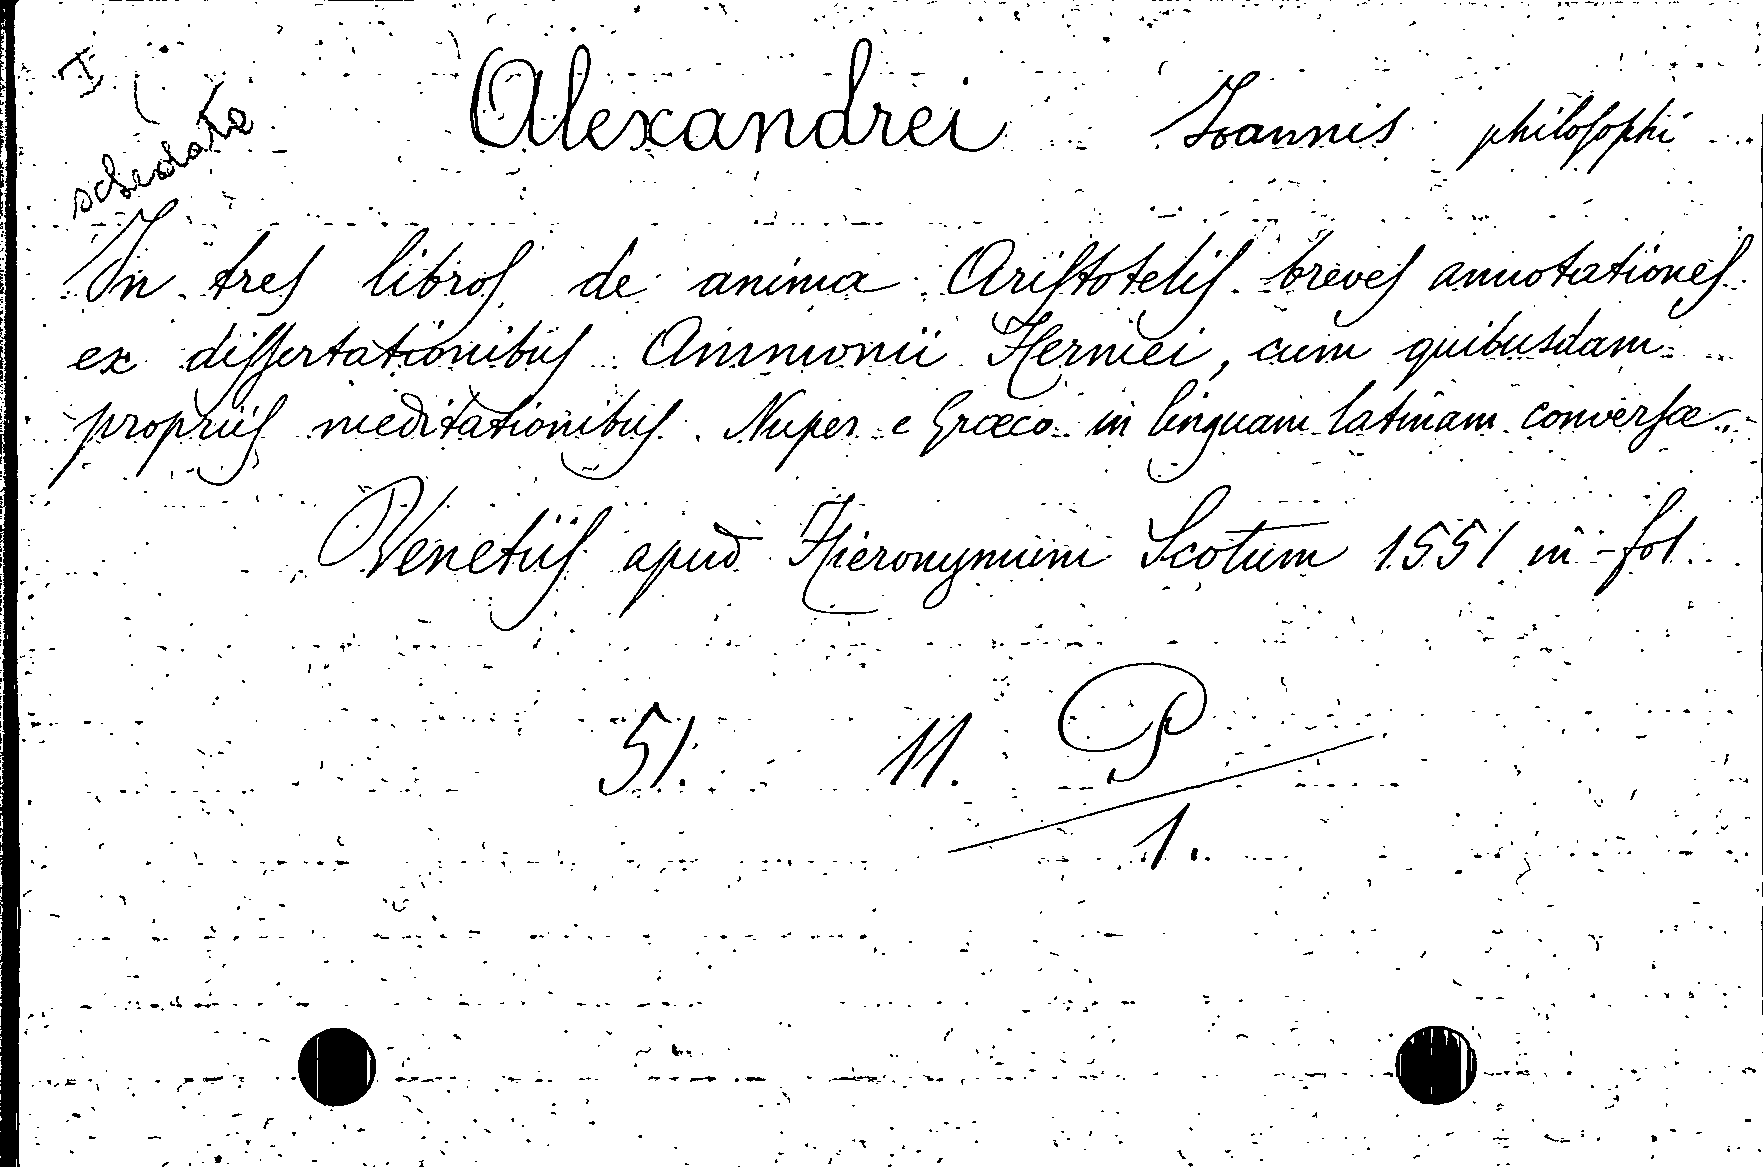 I
schedata
Alexandrei Ioannis philosophi
In tres libros de anima Aristotelis breves annotationes
ex dissertationibus Ammonii Hermei, cum quibusdam
propriis meditationibus. Nuper e Græco in linguam latinam conversæ.
Venetiis apud Hieronymum Scotum 1551 in-fol.
51. 11. P
1.